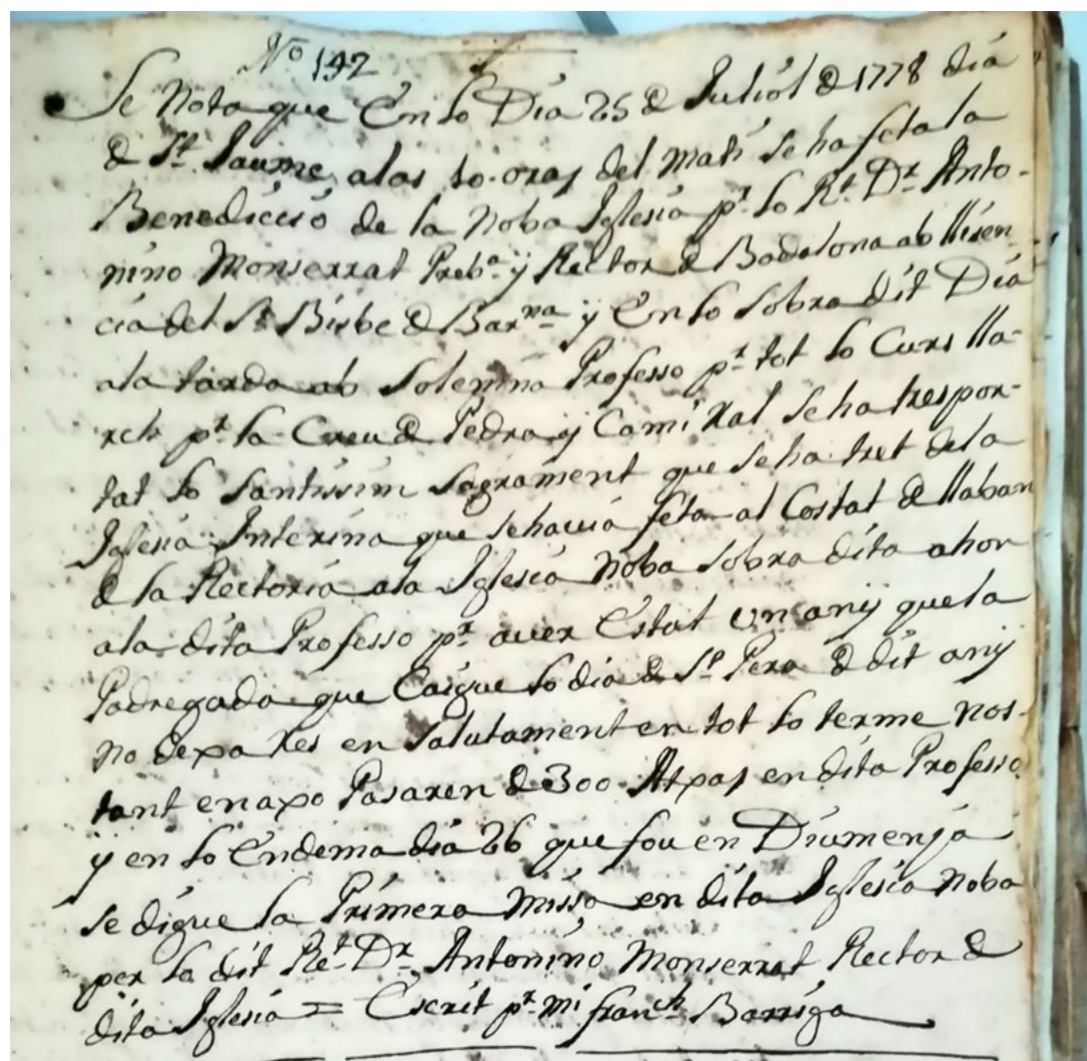 Nº 142
Se Nota que En lo Dia 25 d Juliól d 1778 dia
d St. Jaume alas 10 oras del mati se ha feta la
Benedicció de la Noba Iglesia pr. lo Rt. Dr. Anto-
nino Monserrat Preba. y Rector d Badalona ab llisen-
cia del Sr. Bisbe d Barna y En lo Sobradit Dia
ala tarda ab Solemna Professo pr. tot lo Curs lla-
rch pr. la Creu d Pedra y Cami Ral se ha trespor-
tat lo Santissim Sagrament que se ha tret dela
Iglesia Interina que se havia feta al Costat d llaban
d la Rectoria ala Iglesia Noba sobra dita ahon
ala dita Professo pr. aver Estat un any que la
Padregada que Caigue lo dia d St. Pera d dit any
no dexa Res en Salutament en tot lo terme nos-
tant en axo Pasaren d 300 Atxas en dita Professo
y en lo Endema dia 26 que fou en Diumenja
se digue la Primera Missa en dita Iglesia Noba
per lo dit Rt. Dr. Antonino Monserrat Rector d
dita Iglesia = Escrit pr. mi Franch. Barriga